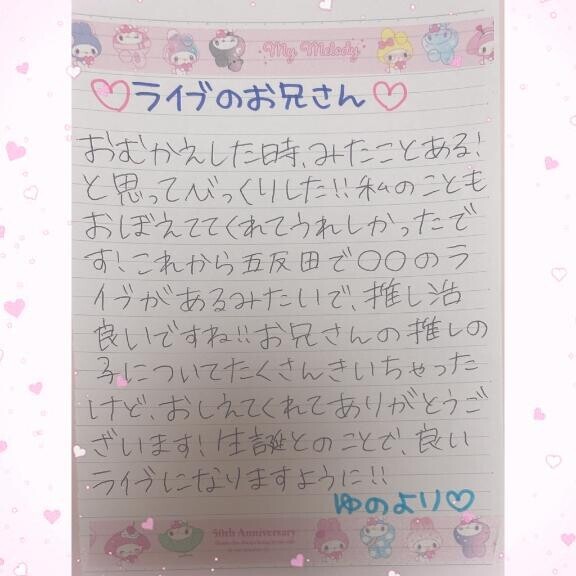 My Melody
♡ライブのお兄さん♡
おむかえした時、みたことある!
と思ってびっくりした!!私のことも
おぼえててくれてうれしかったで
す!これから五反田で〇〇のラ
イブがあるみたいで、推し活
良いですね!!お兄さんの推しの
子についてたくさんきいちゃった
けど、おしえてくれてありがとうご
ざいます!生誕とのことで、良い
ライブになりますように!!
ゆのより♡
50th Anniversary